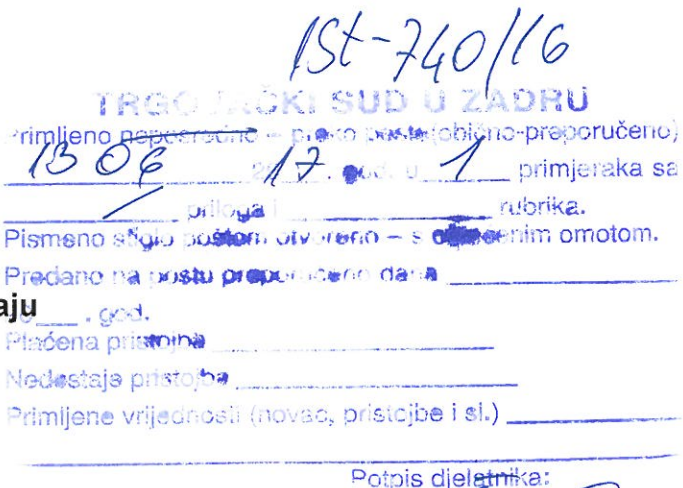 1St-740/16
TRGOVAČKI SUD U ZADRU
Primljeno neposredno – preko pošte (obično-preporučeno)
13 06 17. god. u 1 primjeraka sa
/ priloga i rubrika.
Pismeno stiglo poštom otvoreno – s omotom.
Predano na poštu preporučeno dana
aju . god.
Plaćena pristojba
Nedostaje pristojba
Primljene vrijednosti (novac, pristojbe i sl.)
Potpis djelatnika: